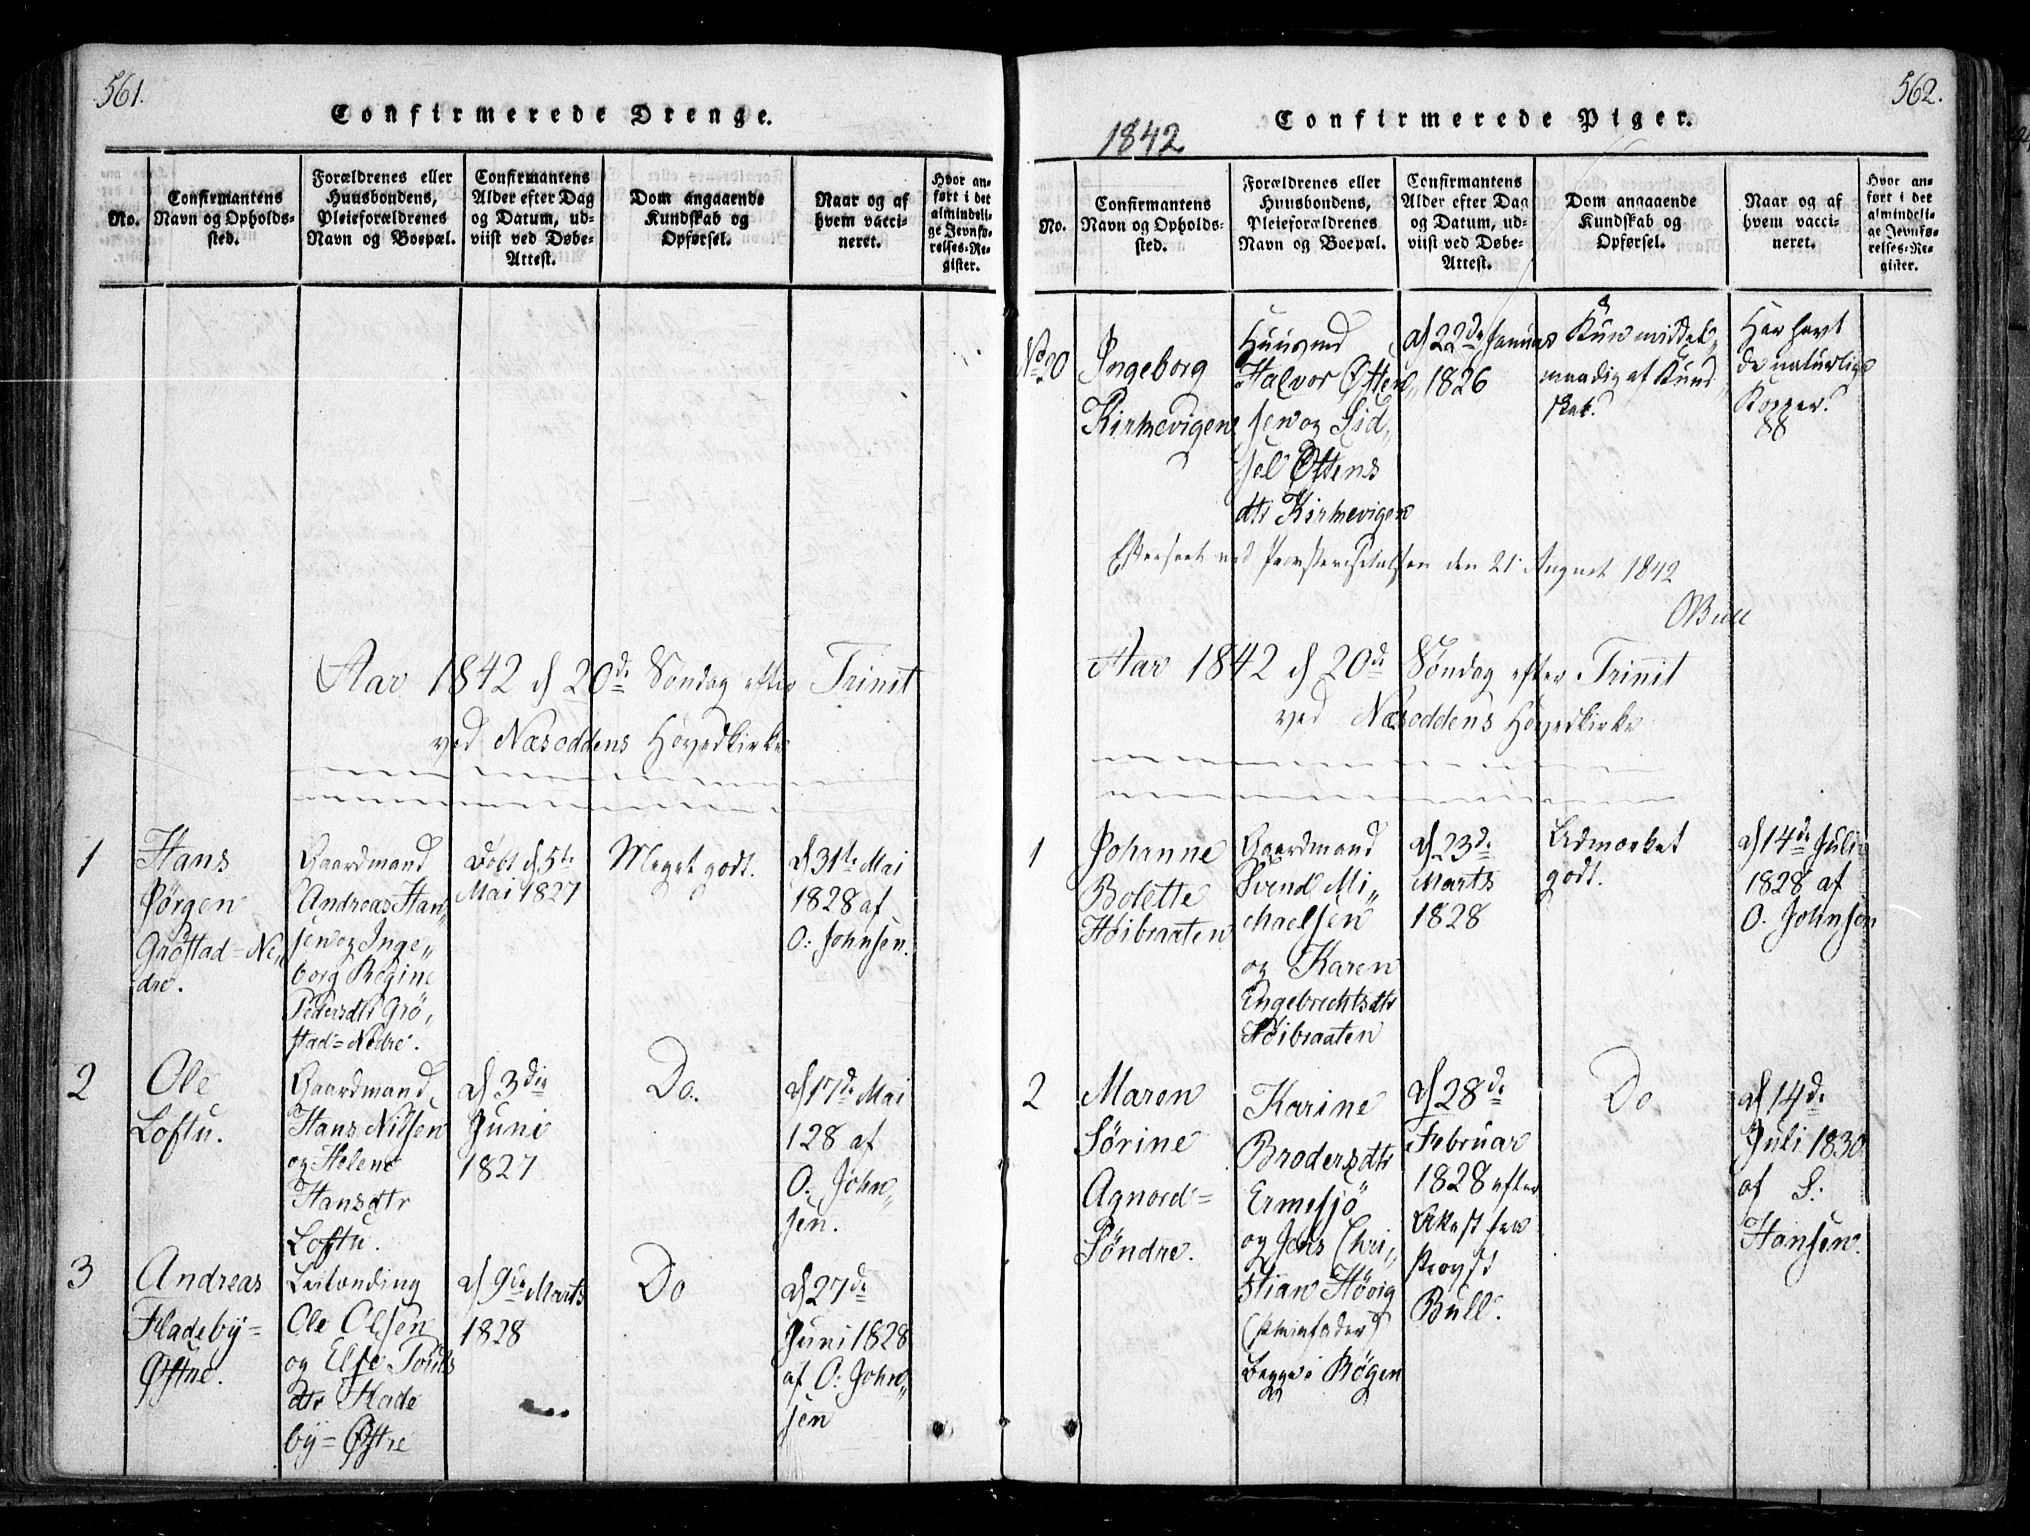 561.
Confirmerede Drenge.
No.
Confirmantens
Navn og Opholds-
sted.
Forældrenes eller
Huusbondens,
Pleieforældrenes
Navn og Boepæl.
Confirmantens
Alder efter Dag
og Datum, ud-
viist ved Døbe-
Attest.
Dom angaaende
Kundskab og
Opførsel.
Naar og af
hvem vacci-
neret.
Hvor an-
ført i det
almindeli-
ge Jevnfø-
relses-Re-
gister.
Aar 1842 d 20de Søndag efter Trinit
ved Næsoddens Hovedkirke
1
Hans
Jørgen
Grøstad=Ne„
dre.
Gaardmand
Andreas Han„
sen og Inge„
borg Regine
Pedersdtr Grø„
stad=Nedre.
Døbt d 5te
Mai 1827
Meget godt.
d 31te Mai
1828 af
O: Johnsen.
2
Ole
Loftu.
Gaardmand
Hans Nilsen
og Helene
Hansdtr
Loftu.
d 3die
Juni
1827
Do.
d 17de Mai
128 af
O. John„
sen.
3
Andreas
Fladeby=
Østre.
Leilænding
Ole Olsen
og Else
dtr Flade
by=Østre
d 9de Marts
1828
Do
d 27de
Juni 1828
af O: John„
sen
562.
Confirmerede Piger.
1842
No.
Confirmantens
Navn og Opholds-
sted.
Forældrenes eller
Huusbondens,
Pleieforældrenes
Navn og Boepæl.
Confirmantens
Alder efter Dag
og Datum, ud-
viist ved Døbe-
Attest.
Dom angaaende
Kundskab og
Opførsel.
Naar og af
hvem vacci-
neret.
Hvor an-
ført i det
almindeli-
ge Jevnfø-
relses-Re-
gister.
No 20
Ingeborg
Kirkevigen
Huusmd
Halvor Otten„
sen og Sid„
sel Ottens
dtr Kirkevigen
d 22de Januar
1826
Kun middel„
maadig af Kund
skab.
Har havt
de naturlige
Kopper.
Efterseet ved Provstevisitatsen den 21 August 1842
OBull
Aar 1842 d 20de Søndag efter Trinit
ved Næsoddens Hovedkirke
1
Johanne
Bolette
Høibraaten
Gaardmand
Svend Mi„
chaelsen
og Karen
Engebrechtsdtr
Høibraaten
d 23de
Marts
1828
Udmærket
godt.
d 14de Juli
1828 af
O. Johnsen
2
Maren
Sørine
Agnord=
Søndre.
Karine
Brodersdtr
Ermesjö
og Jens Chri„
stian Høvig
begge i Røgen
d 28de
Februar
1828 efter
Attest fra
Provst
Bull.
Do
d 14de
Juli 1830
af S:
Hansen.